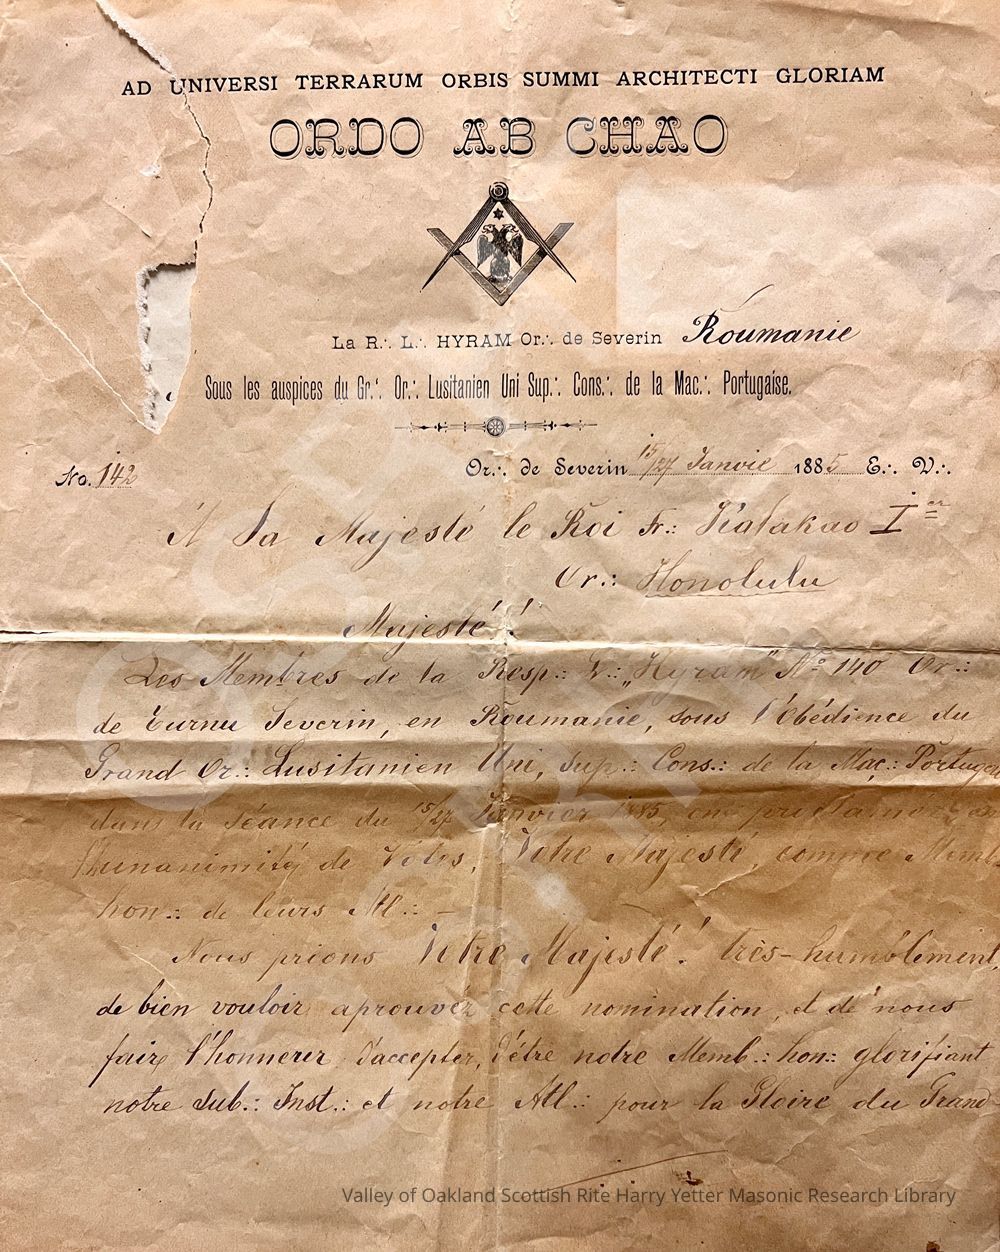 AD UNIVERSI TERRARUM ORBIS SUMMI ARCHITECTI GLORIAM
ORDO AB CHAO
La R∴ L∴ HYRAM Or∴ de Severin Roumanie
Sous les auspices du Gr∴ Or∴ Lusitanien Uni Sup∴ Cons∴ de la Mac∴ Portugaise.
No. 142
Or∴ de Severin 15/27 Janvie 1885 E∴ V∴
A Sa Majesté le Roi Fr∴ Kalakao I er
Or∴ Honolulu
Majesté!
Les Membres de la Resp∴ L∴ „Hyram" No 140 Or∴
de Turnu Severin, en Roumanie, sous l'Obédience du
Grand Or∴ Lusitanien Uni, Sup∴ Cons∴ de la Maç∴ Portugai
dans la Séance du 15/27 Janvier 1885, on proclamé
l'unanimité de Votes, Votre Majesté, comme Memb
hon∴ de leurs Atl∴ —
Nous prions Votre Majesté! très-humblement,
de bien vouloir aprouver cette nomination, et de nous
faire l'honnerer d'accepter, d'être notre Memb∴ hon∴ glorifiant
notre Sub∴ Inst∴ et notre Atl∴ pour la Gloire du Grand
Valley of Oakland Scottish Rite Harry Yetter Masonic Research Library